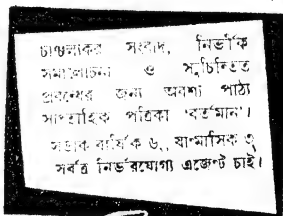 চাঞ্চল্যকর সংবাদ, নির্ভীক
সমালোচনা ও সুচিন্তিত
প্রবন্ধের জন্য অবশ্য পাঠ্য
সাপ্তাহিক পত্রিকা ‘বর্তমান’।
সডাক বার্ষিক ৬৲, ষাণ্মাসিক ৩৲
সর্বত্র নির্ভরযোগ্য এজেণ্ট চাই।